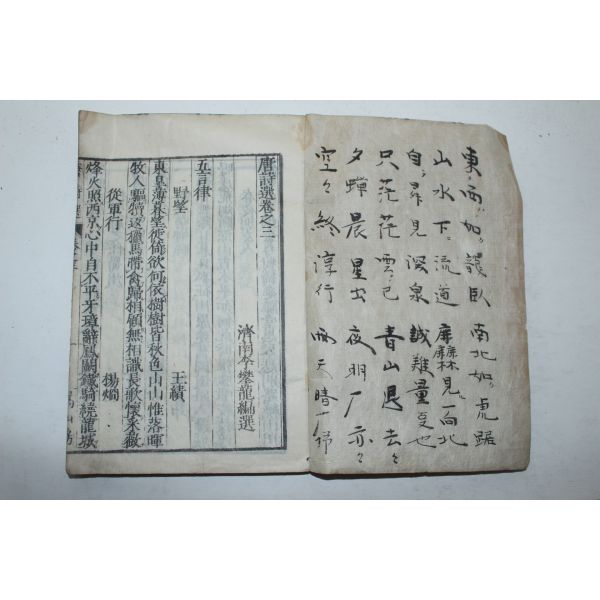 東西如龍臥 南北如虎踞
山水下流道 見一向北
自 見深泉 誠難量 也
只花花雲已 青山退去々
夕蟬晨星出 夜明 亦々
空々終淳行 雨天晴
唐詩選卷之三
濟南李攀龍編選
五言律
野望 王績
東皐薄暮望徙倚欲何依樹樹皆秋色山山惟落暉
牧人驅犢返獵馬帶禽歸相顧無相識長歌懷采薇
從軍行 楊烱
烽火照西京心中自不平牙璋辭鳳闕鐵騎繞龍城